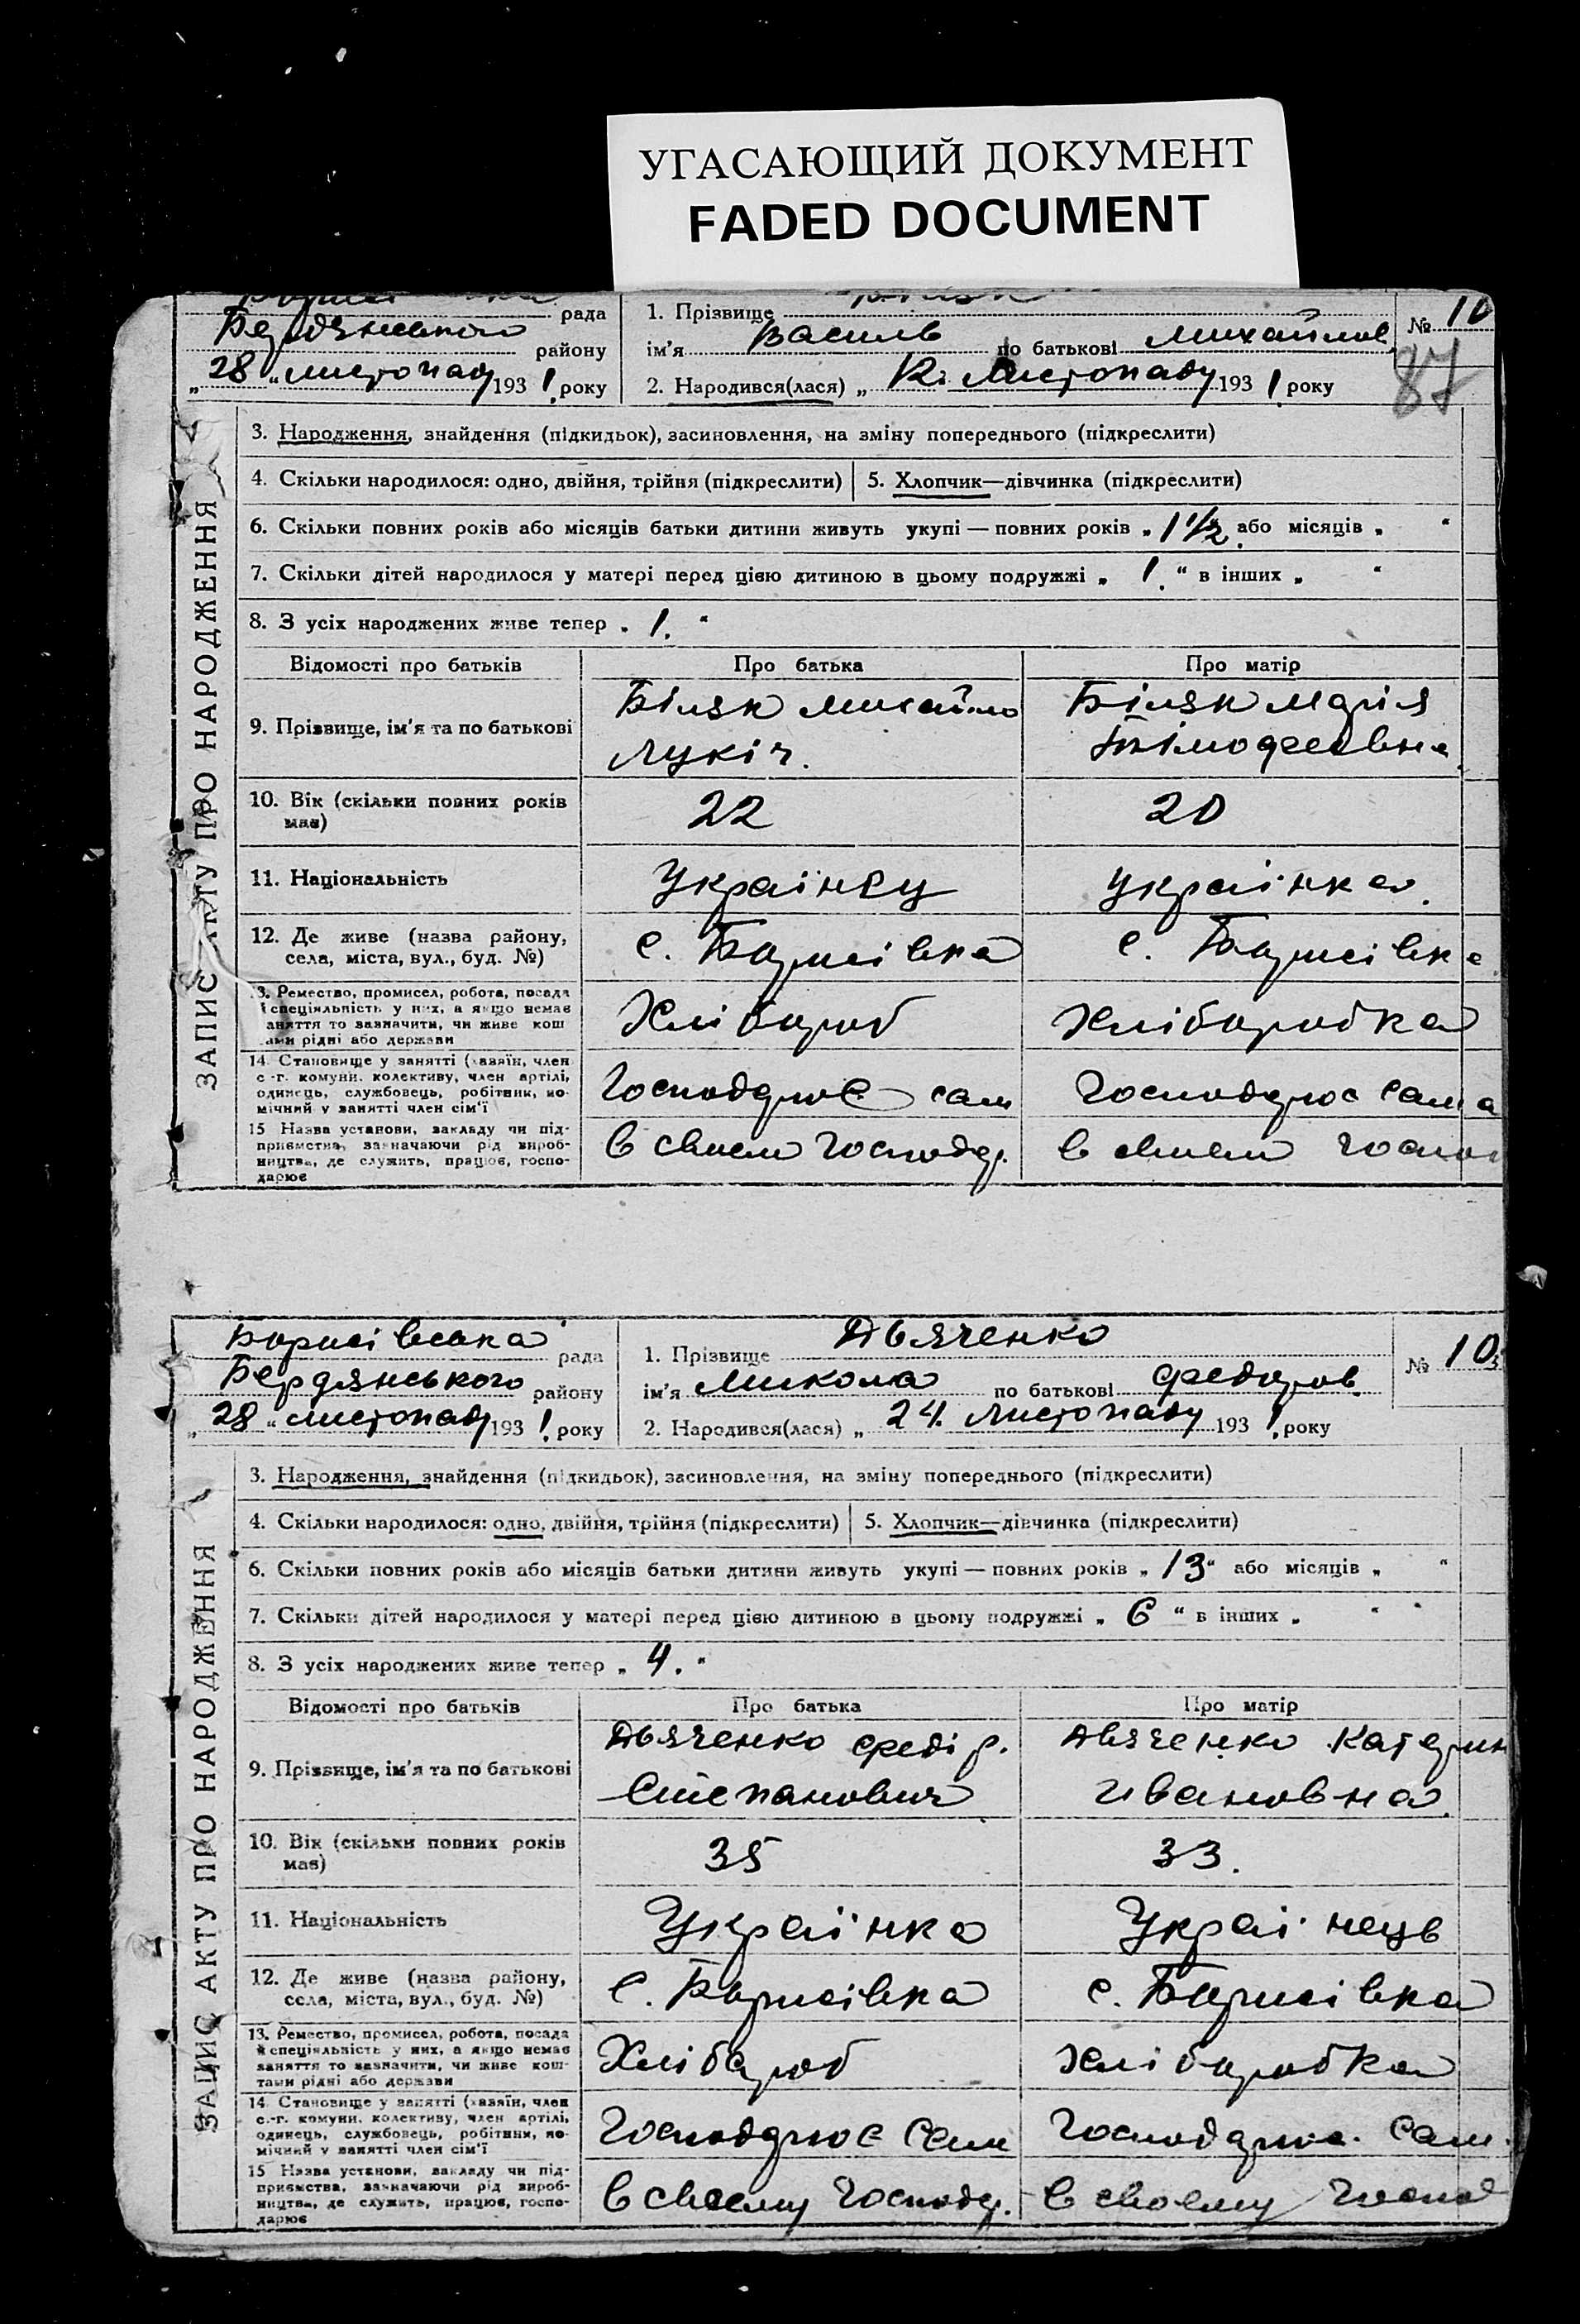 УГАСАЮЩИЙ ДОКУМЕНТ
FADED DOCUMENT
рада
Бердянського району
„28“ листопаду 1931. року
1. Прізвище
ім'я Василь по батькові Михайлов.
2. Народився(лася) „12. Листопаду 1931. року
№ 10
87
ЗАПИС АКТУ ПРО НАРОДЖЕННЯ
3. Народження, знайдення (підкидьок), засиновлення, на зміну попереднього (підкреслити)
4. Скільки народилося: одно, двійня, трійня (підкреслити) 5. Хлопчик—дівчинка (підкреслити)
6. Скільки повних років або місяців батьки дитини живуть укупі — повних років „1 1/2. або місяців „ “
7. Скільки дітей народилося у матері перед цією дитиною в цьому подружжі „ 1. “ в інших „ “
8. З усіх народжених живе тепер „ 1. “
Відомості про батьків Про батька Про матір
9. Прізвище, ім'я та по батькові Біляк Михайло Лукіч. Біляк Марія Тімофеевна.
10. Вік (скільки повних років має) 22 20
11. Національність Українец Українка.
12. Де живе (назва району, села, міста, вул., буд. №) с. Борисівка с. Борисівка
13. Ремество, промисел, робота, посада й спеціяльність у них, а якщо немає заняття то зазначити, чи живе коштами рідні або держави Хлібороб Хліборобка
14. Становище у занятті (хазяїн, член с.-г. комуни, колективу, член артілі, одинець, службовець, робітник, помічний у занятті член сім'ї Господарює сам Господарює сама
15 Назва установи, закладу чи підприємства, зазначаючи рід виробництва, де служить, працює, господарює в своем господар. в своем господ
Борисівська рада
Бердянського району
„28“ листопаду 1931. року
1. Прізвище Дьяченко
ім'я Микола по батькові Федоров.
2. Народився(лася) „24. Листопаду 1931. року
№ 103
ЗАПИС АКТУ ПРО НАРОДЖЕННЯ
3. Народження, знайдення (підкидьок), засиновлення, на зміну попереднього (підкреслити)
4. Скільки народилося: одно, двійня, трійня (підкреслити) 5. Хлопчик—дівчинка (підкреслити)
6. Скільки повних років або місяців батьки дитини живуть укупі — повних років „13“ або місяців „ “
7. Скільки дітей народилося у матері перед цією дитиною в цьому подружжі „ 6 “ в інших „ “
8. З усіх народжених живе тепер „ 4. “
Відомості про батьків Про батька Про матір
9. Прізвище, ім'я та по батькові Дьяченко Федір. Степанович Дьяченко Катерин Ивановна.
10. Вік (скільки повних років має) 35 33.
11. Національність Українка Українець
12. Де живе (назва району, села, міста, вул., буд. №) с. Борисівка с. Борисівка
13. Ремество, промисел, робота, посада й спеціяльність у них, а якщо немає заняття то зазначити, чи живе коштами рідні або держави Хлібороб Хліборобка
14. Становище у занятті (хазяїн, член с.-г. комуни, колективу, член артілі, одинець, службовець, робітник, помічний у занятті член сім'ї Господарює сам Господарює. сам.
15 Назва установи, закладу чи підприємства, зазначаючи рід виробництва, де служить, працює, господарює в своему господар. в своему господ